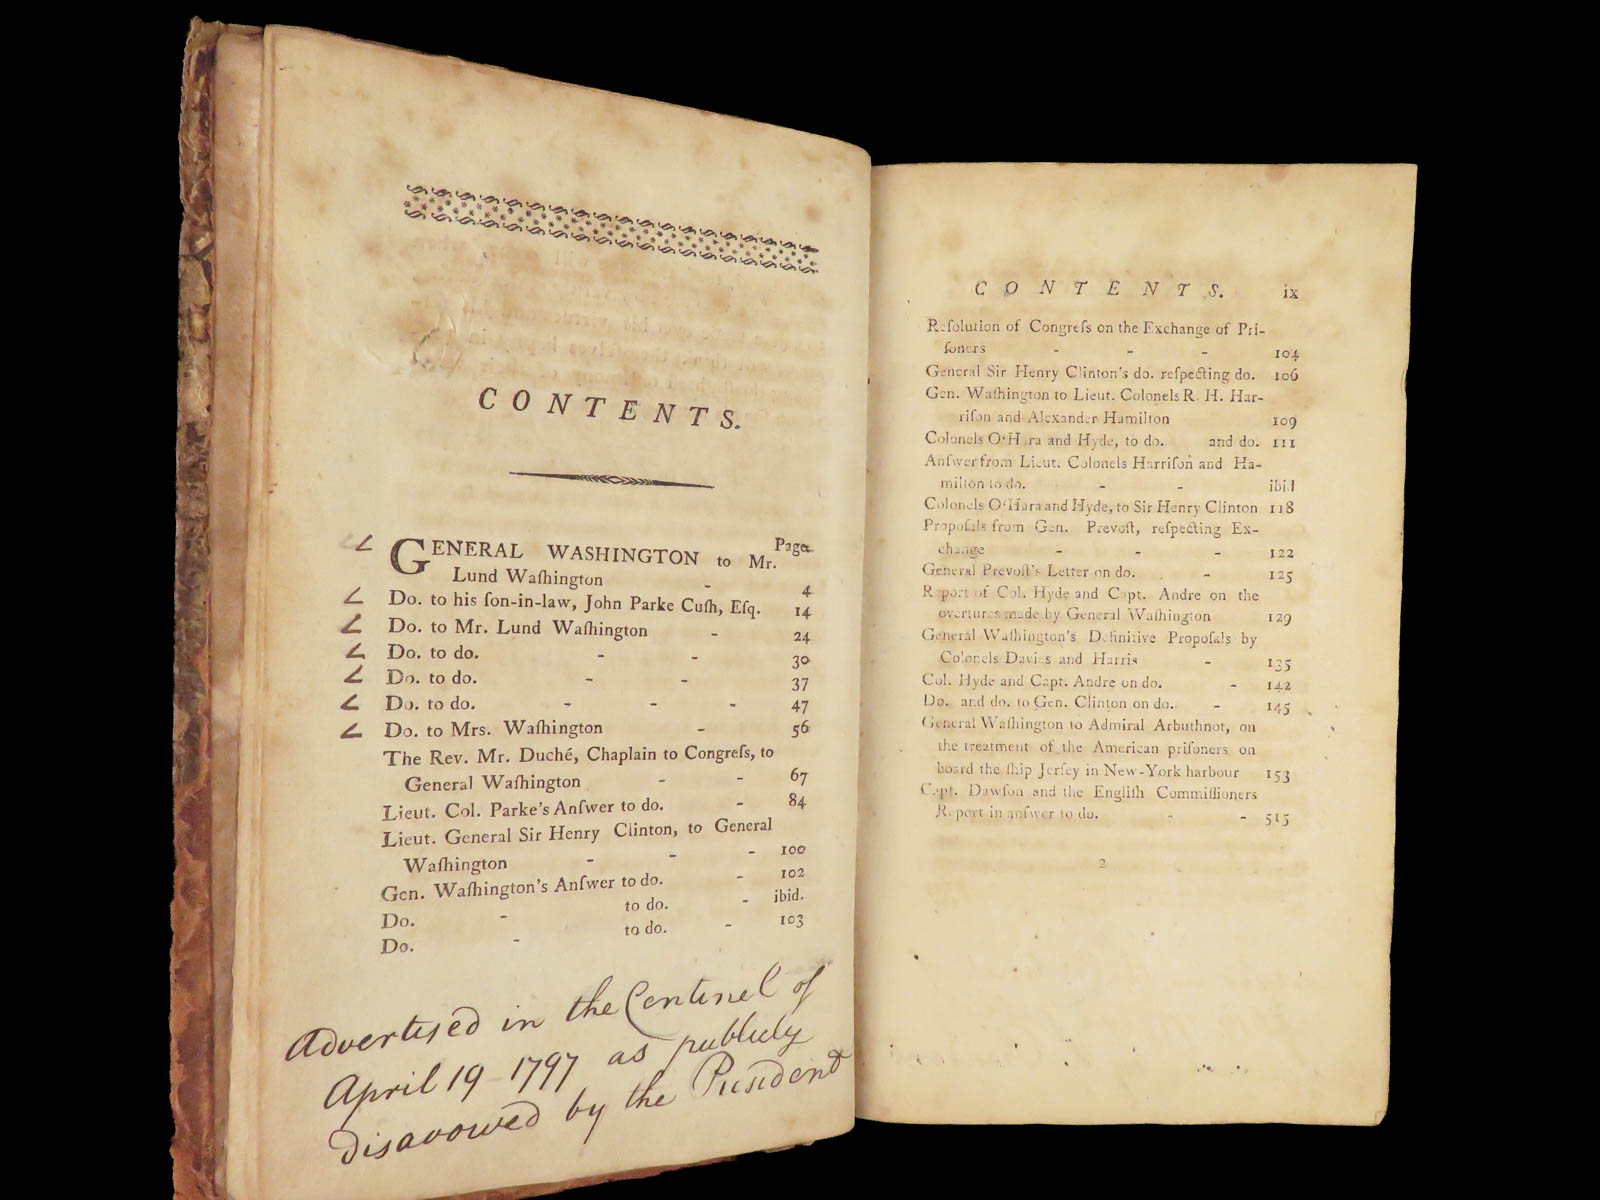 CONTENTS.
Page
GENERAL WASHINGTON to Mr.
Lund Waſhington - 4
Do. to his ſon-in-law, John Parke Cuſh, Eſq. 14
Do. to Mr. Lund Waſhington - 24
Do. to do. - - 30
Do. to do. - - 37
Do. to do. - - - 47
Do. to Mrs. Waſhington - 56
The Rev. Mr. Duché, Chaplain to Congreſs, to
General Waſhington - - 67
Lieut. Col. Parke's Anſwer to do. - 84
Lieut. General Sir Henry Clinton, to General
Waſhington - - - 100
Gen. Waſhington's Anſwer to do. - 102
Do. - to do. - ibid.
Do. - to do. - 103
Advertised in the Centinel of
April 19 1797 as publicly
disavowed by the President
CONTENTS. ix
Reſolution of Congreſs on the Exchange of Pri-
ſoners - - - 104
General Sir Henry Clinton's do. reſpecting do. 106
Gen. Waſhington to Lieut. Colonels R. H. Har-
riſon and Alexander Hamilton 109
Colonels O'Hara and Hyde, to do. and do. 111
Anſwer from Lieut. Colonels Harriſon and Ha-
milton to do. - - ibid
Colonels O'Hara and Hyde, to Sir Henry Clinton 118
Propoſals from Gen. Prevoſt, reſpecting Ex-
change - - - 122
General Prevoſt's Letter on do. - 125
Report of Col. Hyde and Capt. Andre on the
overtures made by General Waſhington 129
General Waſhington's Definitive Propoſals by
Colonels Davies and Harris - 135
Col. Hyde and Capt. Andre on do. - 142
Do. and do. to Gen. Clinton on do. - 145
General Waſhington to Admiral Arbuthnot, on
the treatment of the American priſoners on
board the ſhip Jerſey in New-York harbour 153
Capt. Dawſon and the Engliſh Commiſſioners
Report in anſwer to do. - - 515
2